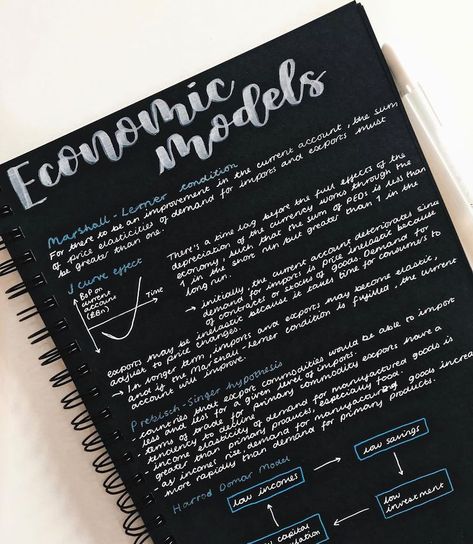 Economic
models
Marshall-Lerner condition
For there to be an improvement in the current account, the sum
of price elasticities of demand for imports and exports must
be greater than one.
J curve effect
BoP on
current
account
($Bn)
time
There's a time lag before the full effects of the
depreciation of the currency works through the
economy, such that the sum of PEDs is less than
1 in the short run but greater than 1 in the
long run.
→ initially, the current account deteriorates since
demand for imports is price inelastic because
of contracts or stocks of goods. Demand for
exports may be inelastic because it takes time for consumers to
adjust to price changes.
→ In longer term, imports and exports may become elastic,
and if the Marshall-Lerner condition is fulfilled, the current
account will improve.
Prebisch-Singer hypothesis
countries that export commodities would be able to import
less and less for a given level of exports.
terms of trade for primary commodity exports have a
tendency to decline
income elasticity of demand for manufactured goods is
greater than primary products, especially food.
as incomes rise demand for manufactured goods increases
more rapidly than demand for primary products.
Harrod Domar Model
low incomes
low savings
low
investment
capital